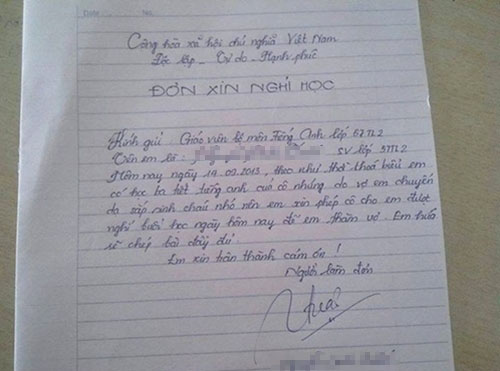 Date          No.
Cộng hòa xã hội chủ nghĩa Việt Nam
Độc lập - Tự do - Hạnh phúc
ĐƠN XIN NGHỈ HỌC
Kính gửi : Giáo viên bộ môn Tiếng Anh lớp 57TL2
Tên em là : SV lớp 57TL2
Hôm nay ngày 14.02.2013, theo như thời khoá biểu em
có học ba tiết tiếng anh của cô nhưng do vợ em chuyển
dạ sắp sinh cháu nhỏ nên em xin phép cô cho em được
nghỉ buổi học ngày hôm nay để em thăm vợ. Em hứa
sẽ chép bài đầy đủ.
Em xin trân thành cảm ơn !
Người làm đơn